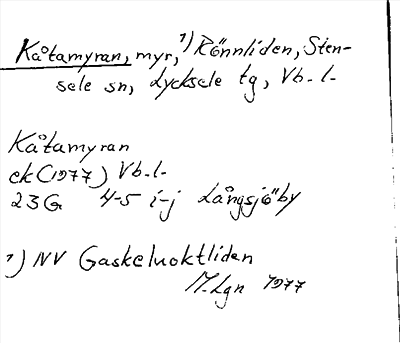 Kåtamyran, myr, ¹) Rönnliden, Sten-
sele sn, Lycksele tg, Vb. l.
Kåtamyran
ek (1977) Vb. l.
23G 4-5 i-j Långsjöby
¹) NV Gaskeluoktliden
M. Lgn 1977